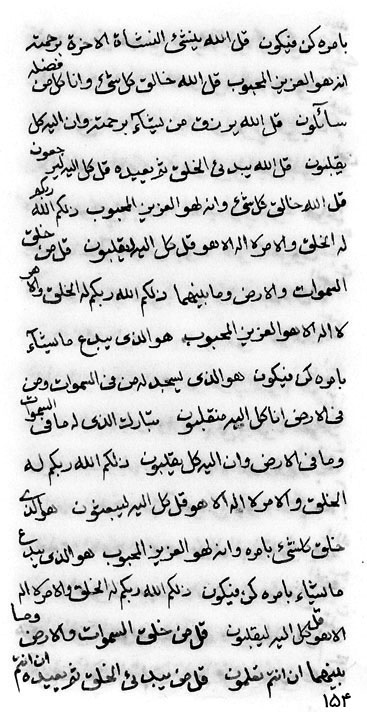 بامره كن فيكون قل الله ينشئ النشاة الاخرة برحمته
انه هو العزيز المحبوب قل الله خالق كل شئ وانا كل من فضله
سائلون قل الله يرزق من يشآء برحمته وان اليه كل
يقلبون قل الله يبدئ الخلق ثم يعيده قل كل اليه ليرجعون
قل الله خالق كل شئ وانه لهو العزيز المحبوب ذلكم الله ربكم
له الخلق والامر لا اله الا هو قل كل اليه ليقلبون قل من خلق
السموات والارض وما بينهما ذلكم الله ربكم له الخلق والامر
لا اله الا هو العزيز المحبوب هو الذى يبدع ما يشآء
بامره كن فيكون هو الذى يسجد له من فى السموات ومن
فى الارض انا كل اليه منقلبون تبارك الذى له ما فى السموات
وما فى الارض وان اليه كل يقلبون ذلكم الله ربكم له
الخلق والامر لا اله الا هو قل كل اليه ليبعثون هو الذى
خلق كلشئ بامره وانه لهو العزيز المحبوب هو الذى يبدع
ما يشاء بامره كن فيكون ذلكم الله ربكم له الخلق والامر لا اله
الا هو قل كل اليه ليقلبون قل من خلق السموات والارض وما
بينهما ان انتم تعلمون قل من يبدئ الخلق ثم يعيده ان انتم
١٥۴